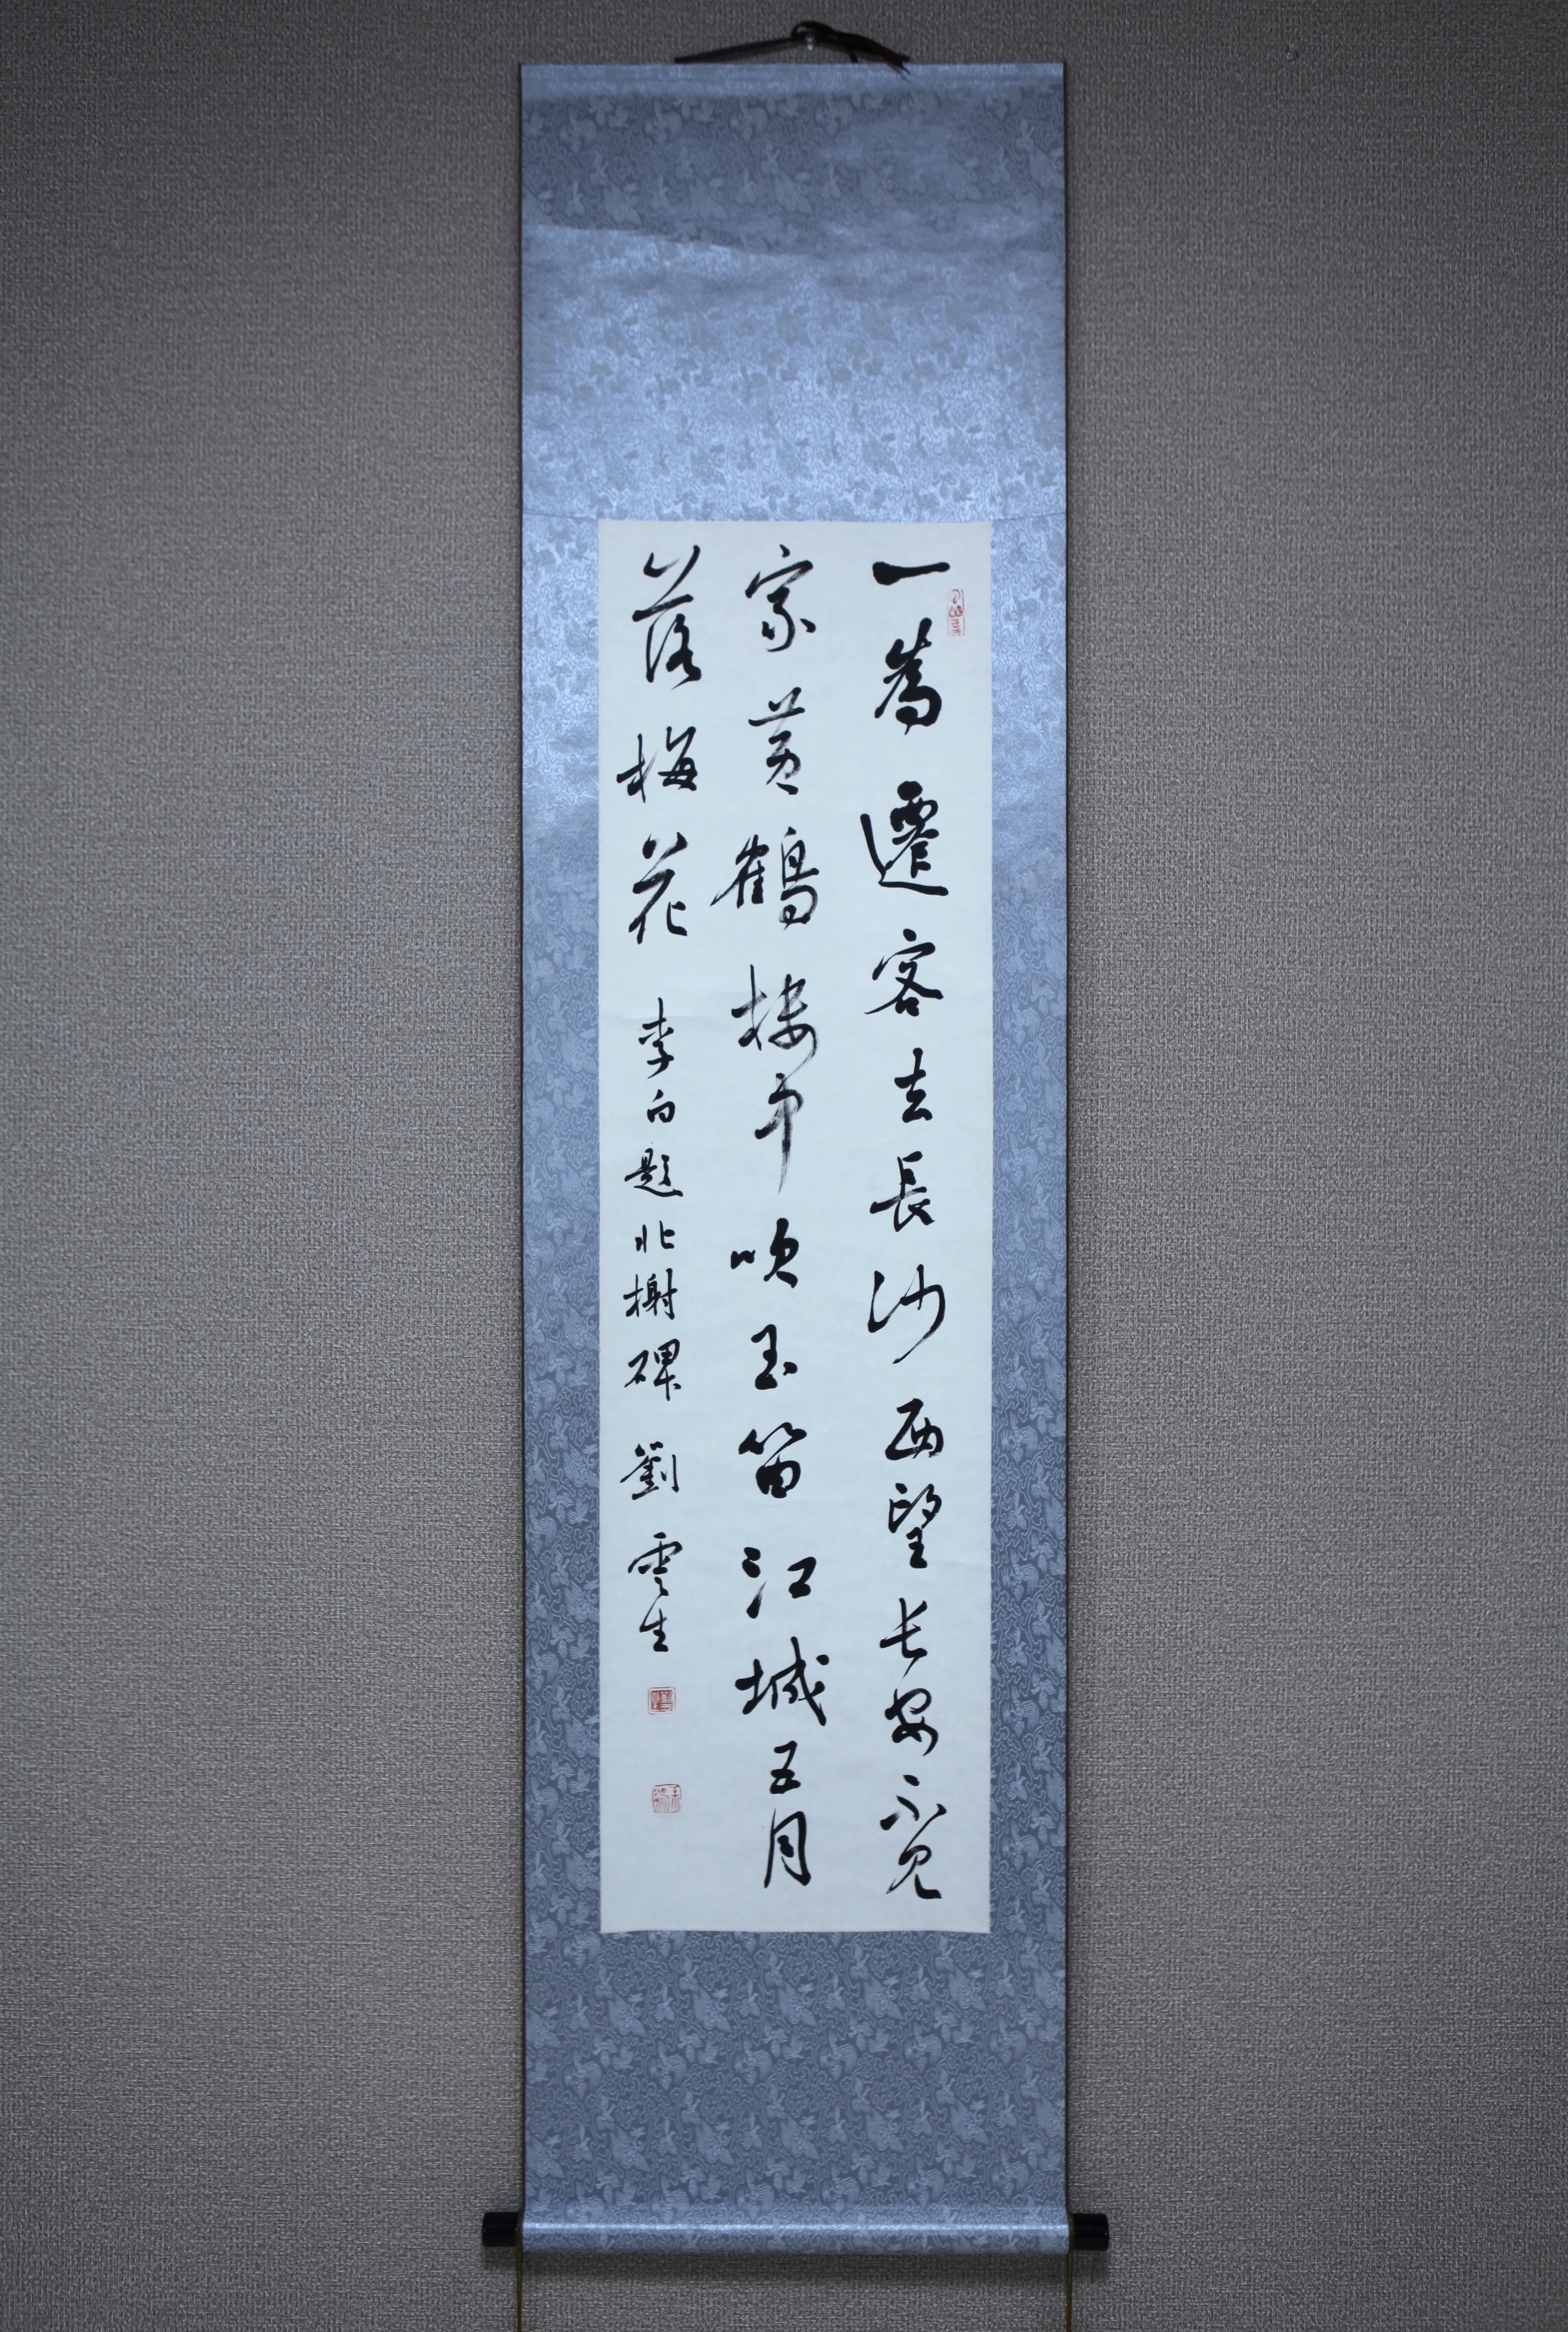 一為遷客去長沙西望长安不见
家黄鶴楼中吹玉笛江城五月
落梅花 李白題北榭碑 劉雲生